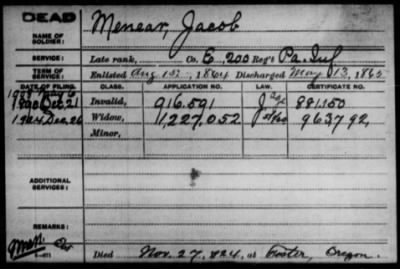 DEAD
NAME OF SOLDIER: Menear, Jacob
SERVICE: Late rank, Co. E, 200 Reg't Pa. Inf
TERM OF SERVICE: Enlisted Aug 1, 1864 Discharged May 13, 1865
DATE OF FILING. CLASS. APPLICATION NO. LAW. CERTIFICATE NO.
Invalid, 916.591 881,150
1924, Dec. 26 Widow, 1,227,052 963792,
Minor,
ADDITIONAL SERVICES:
REMARKS:
Died Nov. 27, 1924, at Foster, Oregon.